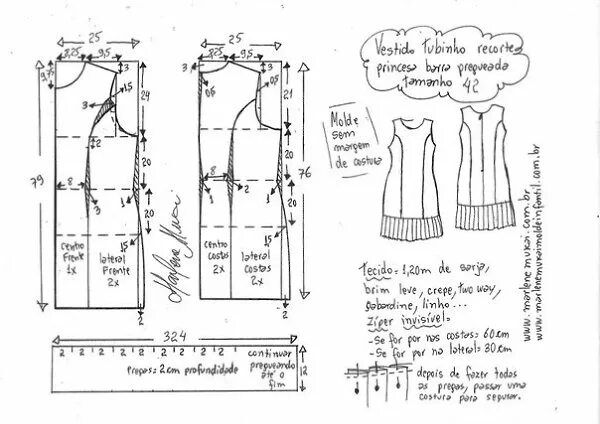 Vestido tubinho recorte
princesa barra pregueada
tamanho 42
25
8,25 9,5
3
9,75
15
3
24
2
20
79
8
3
1
20
15
centro
Frente
1x
lateral
Frente
2x
2
25
8,25 9,5
3
3
0,5
0,5
21
20
76
8
2
1
20
15
centro
costas
2x
lateral
Costas
2x
2
Marlene Mukai
Molde
sem
margem
de costura
www.marlenemukai.com.br
www.marlenemukaimoldeinfantil.com.br
Tecido = 1,20m de sarja,
brim leve, crepe, two way,
gabardine, linho...
Zíper invisível=
-Se for por nas costas=60cm
-Se for por na lateral=30cm
depois de fazer todas
as pregas, passar uma
costura para segurar.
324
2 2 2 2 2 2 2 2 2
Pregas=2cm profundidade
continuar
pregueando
até o
fim
12